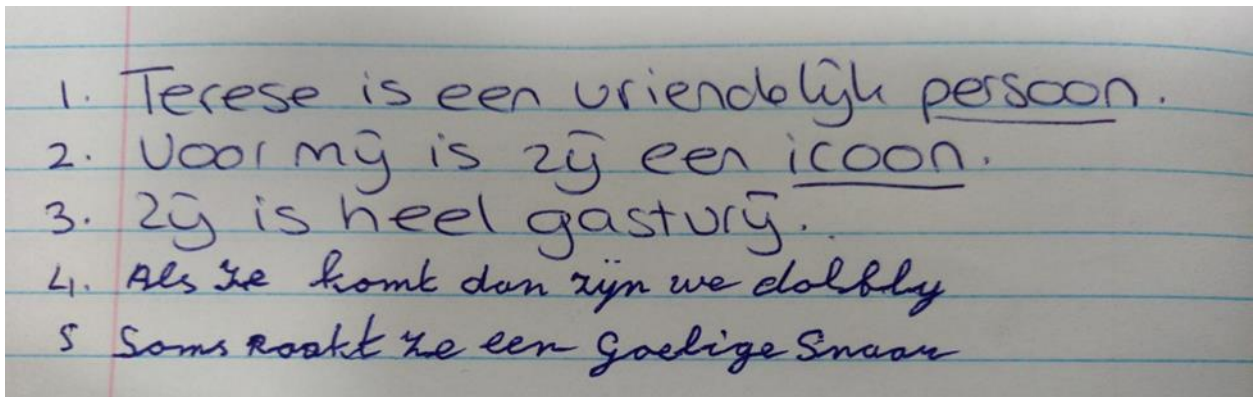 1. Terese is een vriendelijk persoon.
2. Voor mij is zij een icoon.
3. Zij is heel gastvrij.
4. Als ze komt dan zijn we dolblly
5 Soms Raakt ze een Goelige Snaar